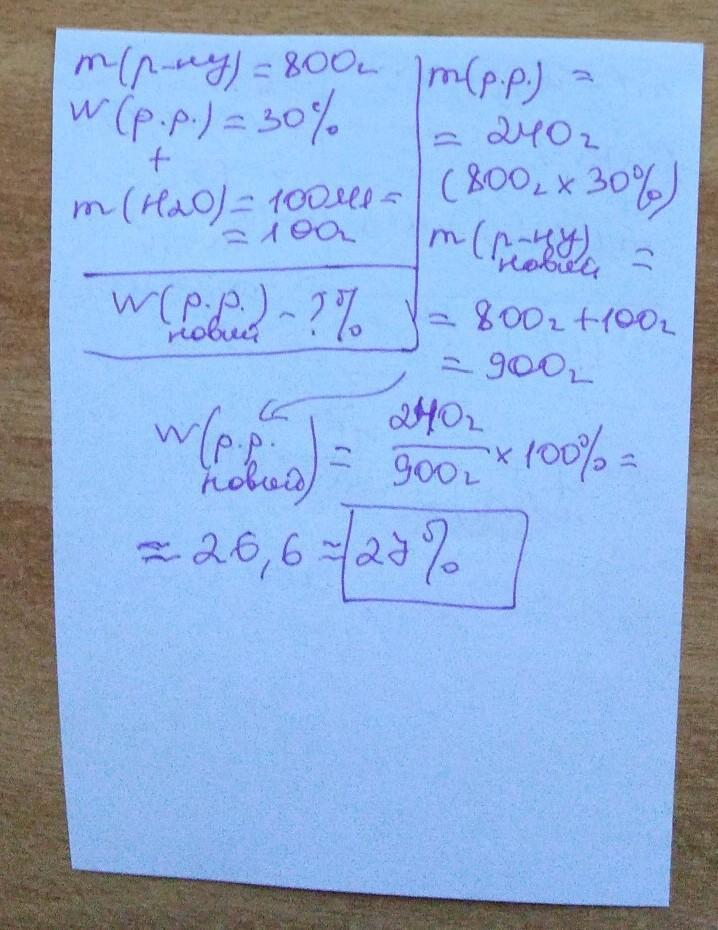 m(р-ну) = 800г
W(р.р.) = 30%
+
m(H2O) = 100мл =
= 100г
W(р.р.) - ?%
новий
m(р.р.) =
= 240г
(800г x 30%)
m(р-ну) =
новий
= 800г + 100г
= 900г
W(р.р. новий) = 240г / 900г x 100% =
≈ 26,6 ≈ 27%